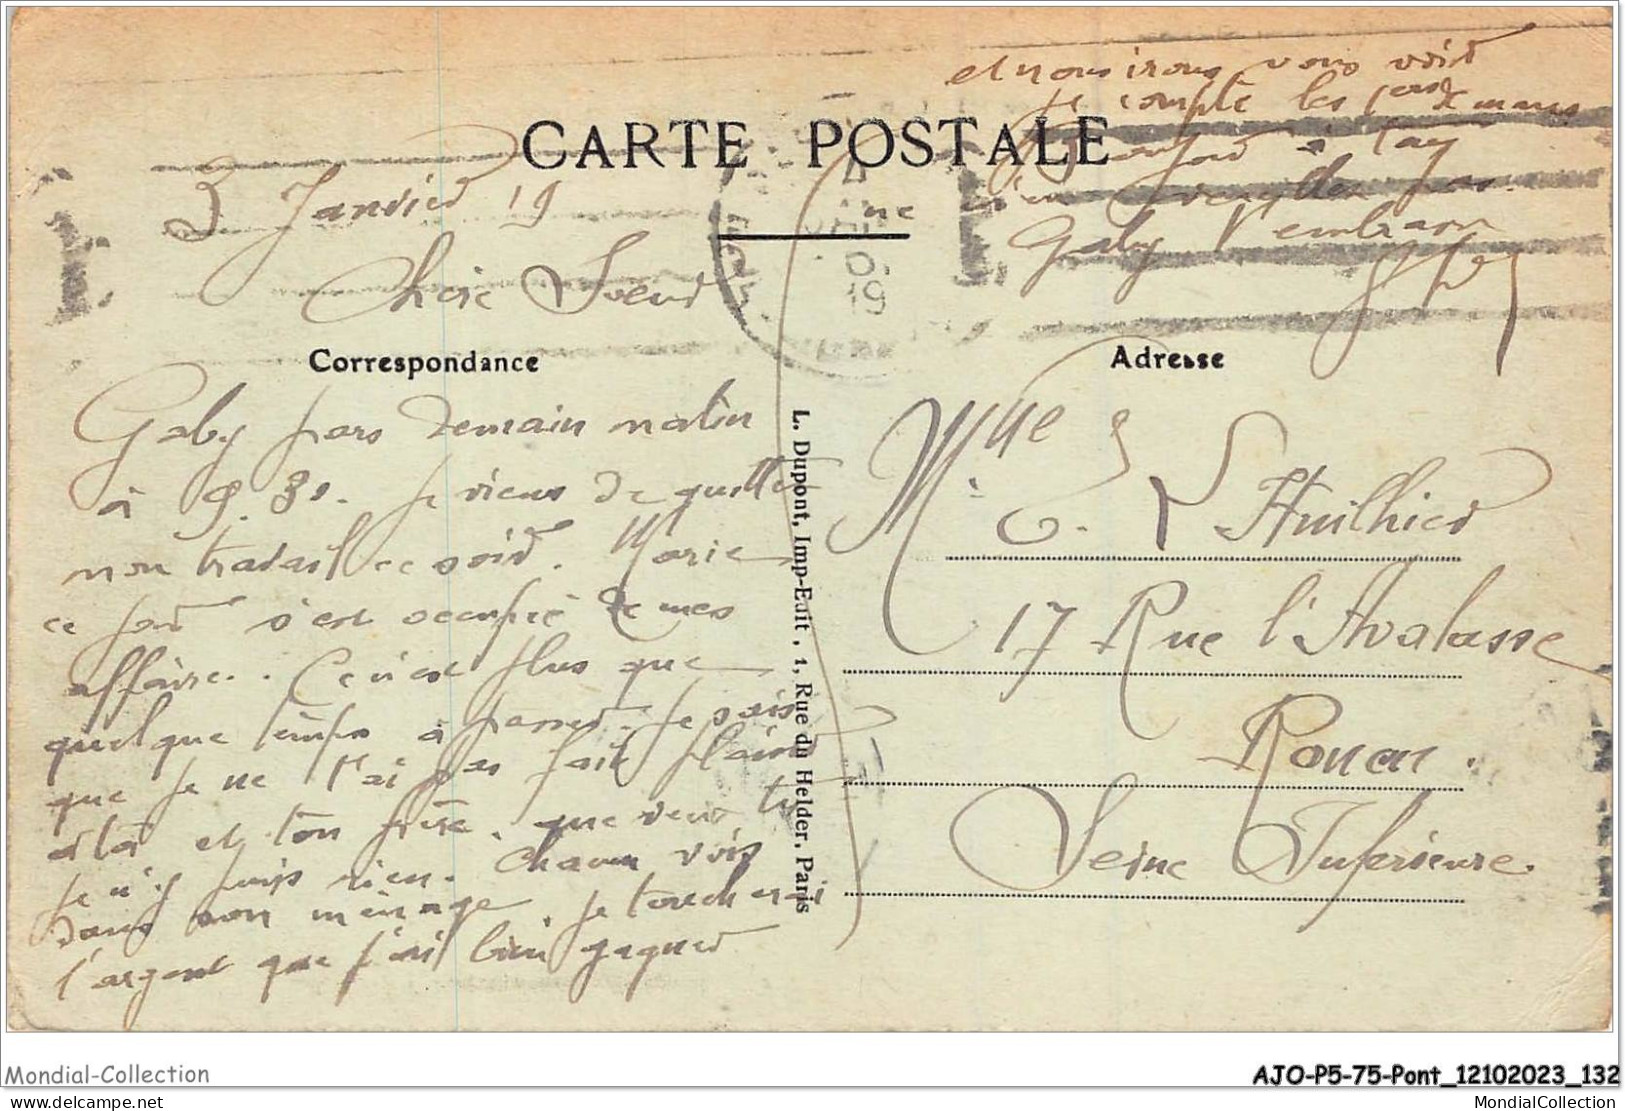 CARTE POSTALE
3 Janvier 19
Chere Soeur
Correspondance
Gaby pars demain matin
à 9. 30. Je viens de quitter
mon travail ce soir. Marie
ce jour s'est occupé de mes
affaire.. Ce n'est plus que
quelque temps à passer. Je sais
que je ne t'ai pas fait plaisir
à ta et ton frère. que veux tu
je n'y puis rien. Chacun vois
dans son ménage. je toucherai
l'argent que j'ai bien gagner
et nous irons vous voir
je compte les 1ers de mars
à
pas.
Gaby t'embrasse
Adresse
Mlle
G. L'Huillier
17 Rue l'Avalasse
Rouen.
Seine Inferieure.
L. Dupont, Imp-Edit, 1, Rue du Helder, Paris
Mondial-Collection
AJO-P5-75-Pont_12102023_132
www.delcampe.net
MondialCollection